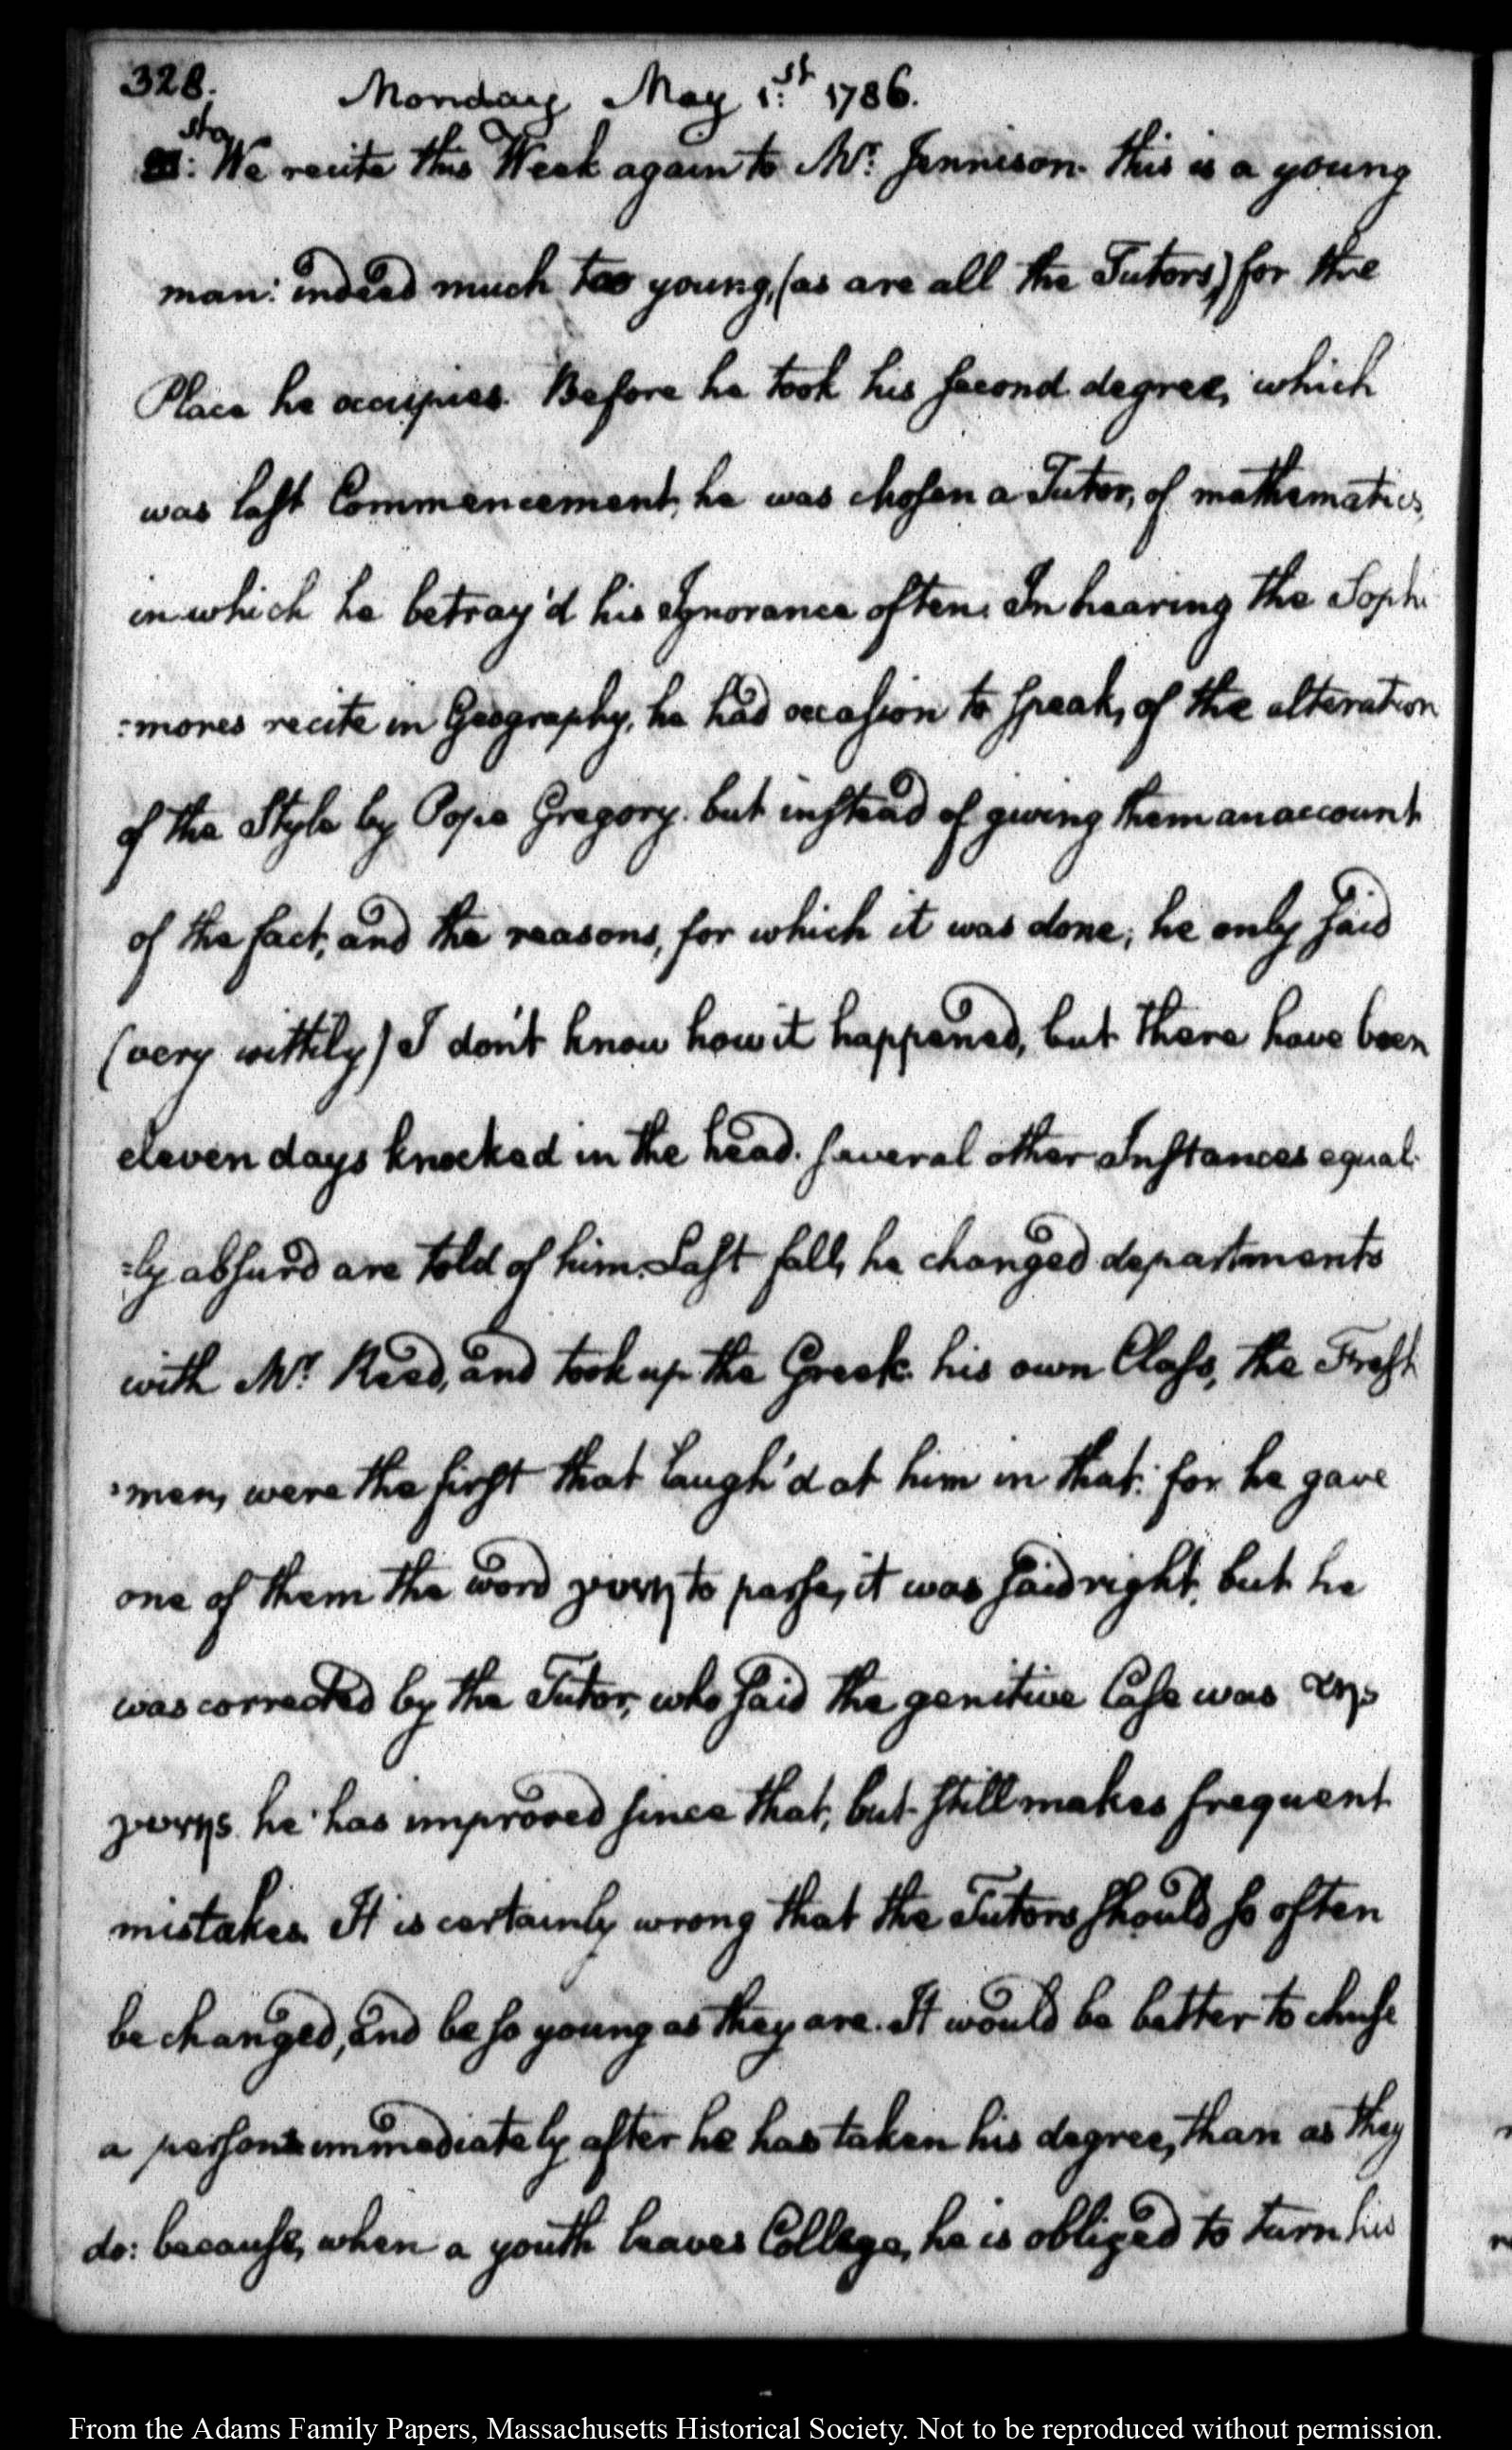 328.
Monday May 1.st 1786.
We recite this Week again to Mr. Jennison. this is a young
man: indeed much too young, (as are all the Tutors,) for the
Place he occupies. Before he took his second degree, which
was last Commencement, he was chosen a Tutor, of mathematics,
in which he betray'd his Ignorance often. In hearing the Soph
:mores recite in Geography, he had occasion to speak, of the alteration
of the Style by Pope Gregory. but instead of giving them an account
of the fact, and the reasons, for which it was done, he only said
(very wittily) I don't know how it happened, but there have been
eleven days knocked in the head. several other Instances equal
:ly absurd are told of him. Last fall, he changed departments
with Mr. Read, and took up the Greek. his own Class, the Fresh
:men, were the first that laugh'd at him in that: for he gave
one of them the word γυνη to parse, it was said right, but he
was corrected by the Tutor, who said the genitive Case was της
γυνης. he has improved since that, but still makes frequent
mistakes. It is certainly wrong that the Tutors should so often
be changed, and be so young as they are. It would be better to chuse
a person immediately after he has taken his degree, than as they
do: because, when a youth leaves College, he is obliged to turn his
From the Adams Family Papers, Massachusetts Historical Society. Not to be reproduced without permission.